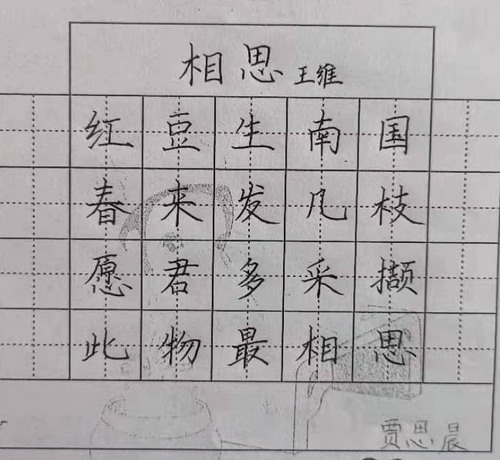 相思 王维
红豆生南国
春来发凡枝
愿君多采撷
此物最相思
贾思晨